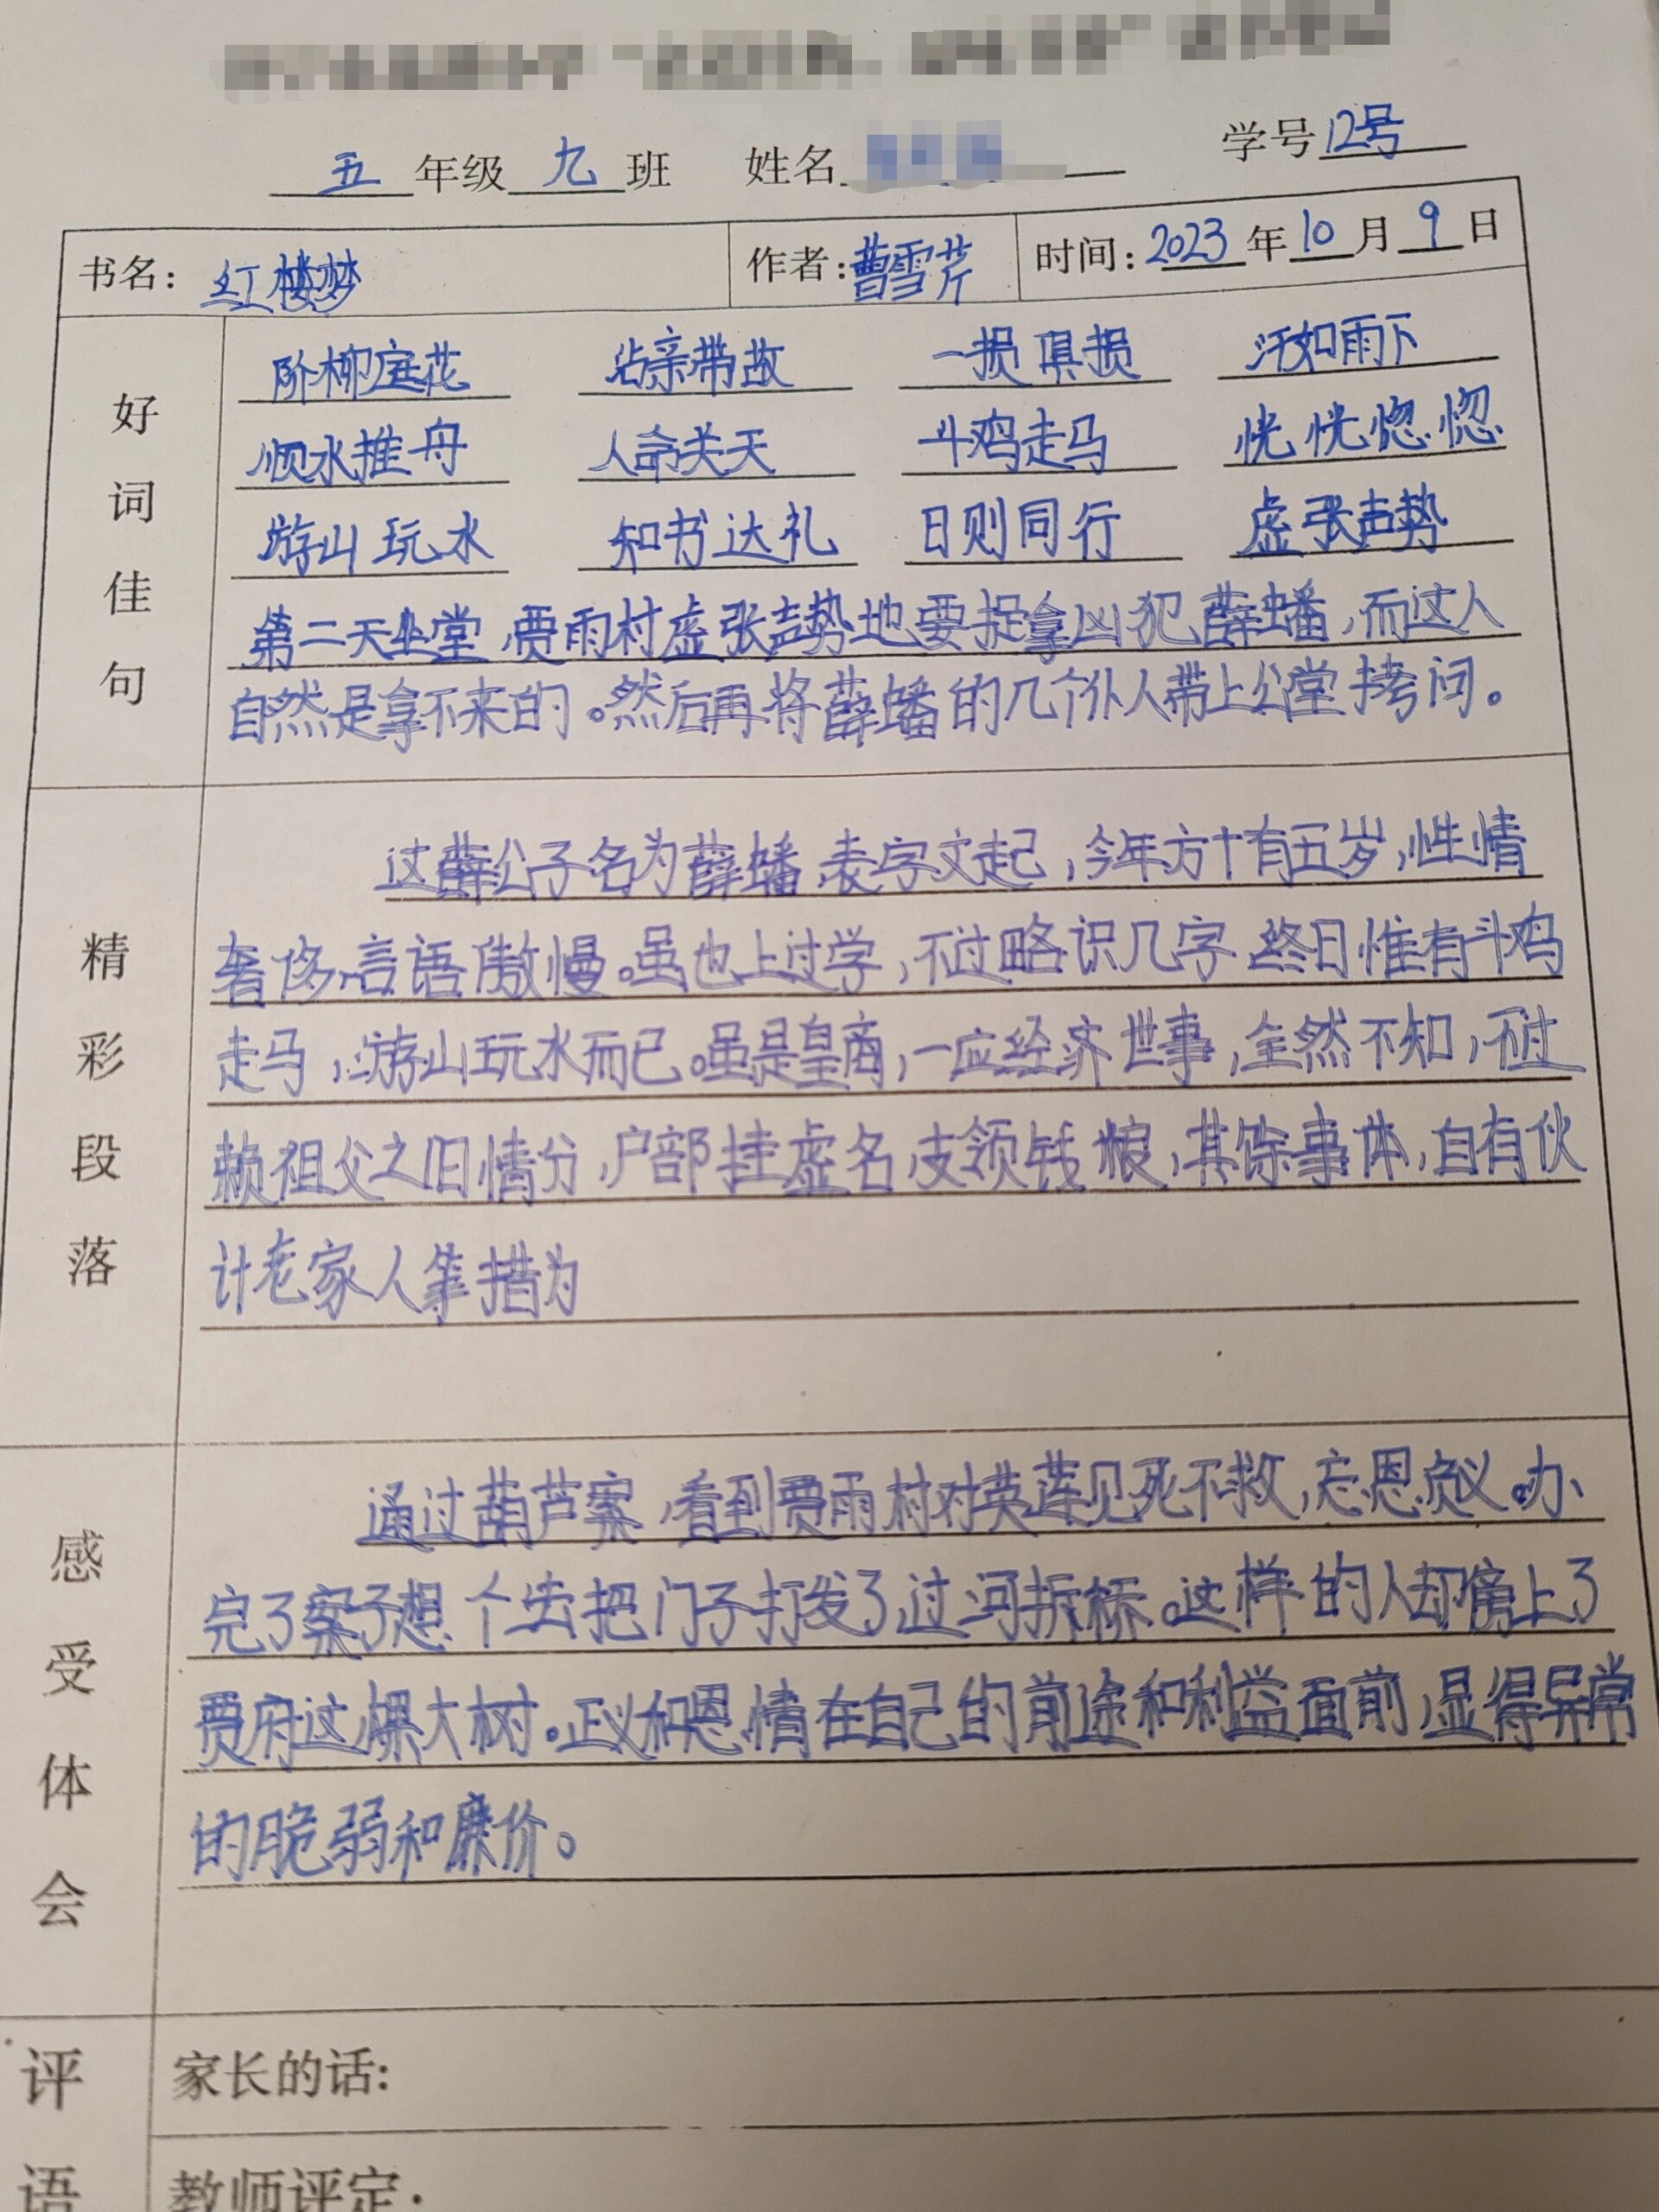 五年级九班 姓名 学号12号
书名：红楼梦 作者：曹雪芹 时间：2023年10月9日
好词佳句
阶柳庭花 沾亲带故 一损俱损 汗如雨下
顺水推舟 人命关天 斗鸡走马 恍恍惚惚
游山玩水 知书达礼 日则同行 虚张声势
第二天坐堂,贾雨村虚张声势地要捉拿凶犯薛蟠,而这人
自然是拿不来的。然后再将薛蟠的几个仆人带上公堂拷问。
精彩段落
这薛公子名为薛蟠,表字文起,今年方十有五岁,性情
奢侈,言语傲慢。虽也上过学,不过略识几字,终日惟有斗鸡
走马,游山玩水而已。虽是皇商,一应经济世事,全然不知,不过
赖祖父之旧情分,户部挂虚名,支领钱粮,其馀事体,自有伙
计老家人等措为
感受体会
通过葫芦案,看到贾雨村对英莲见死不救,忘恩负义。办
完了案子想个法把门子打发了,过河拆桥。这样的人却傍上了
贾府这棵大树。正义和恩情在自己的前途和利益面前,显得异常
的脆弱和廉价。
评语
家长的话：
教师评定：